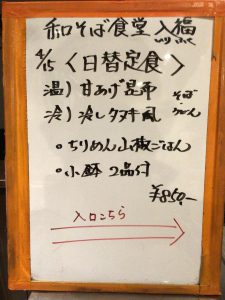 和そば食堂 入福
いりふく
4/15 〈日替定食〉
温) 甘あげ昆布 そば
冷) 冷しタヌキ風 うどん
・ちりめん山椒ごはん
・小鉢 2品付
¥850-
入口こちら